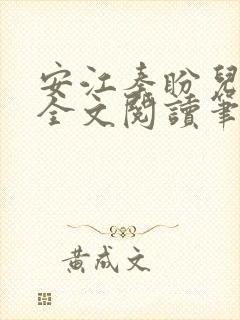 安江秦盼兒
全文閱讀筆
黃成文